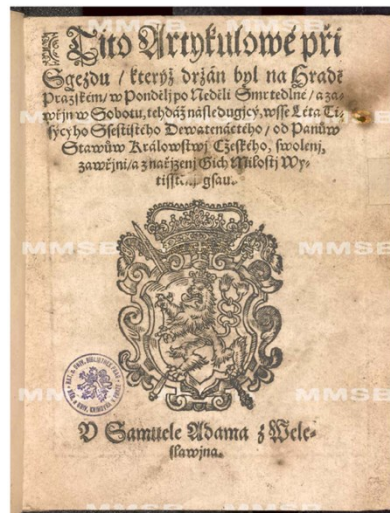 Tito Artykulowé při
Sgezdu / kterýž držán byl na Hradě
Pražském / w Pondělj po Neděli Smrtedlné / a za-
wřjn w Sobotu, tehdáž následugjcý, wsse Léta Ti-
sýcýho Ssestistého Dewatenáctého / od Panůw
Stawůw Králowstwj Cžeského, swolenj,
zawřjni / a z nařjzenj Gich Milostj Wy-
gsau.
MMSB
MMSB
MMSB
MMSB
MMSB
MMSB
U Samuele Adama z Wele-
slawjna.